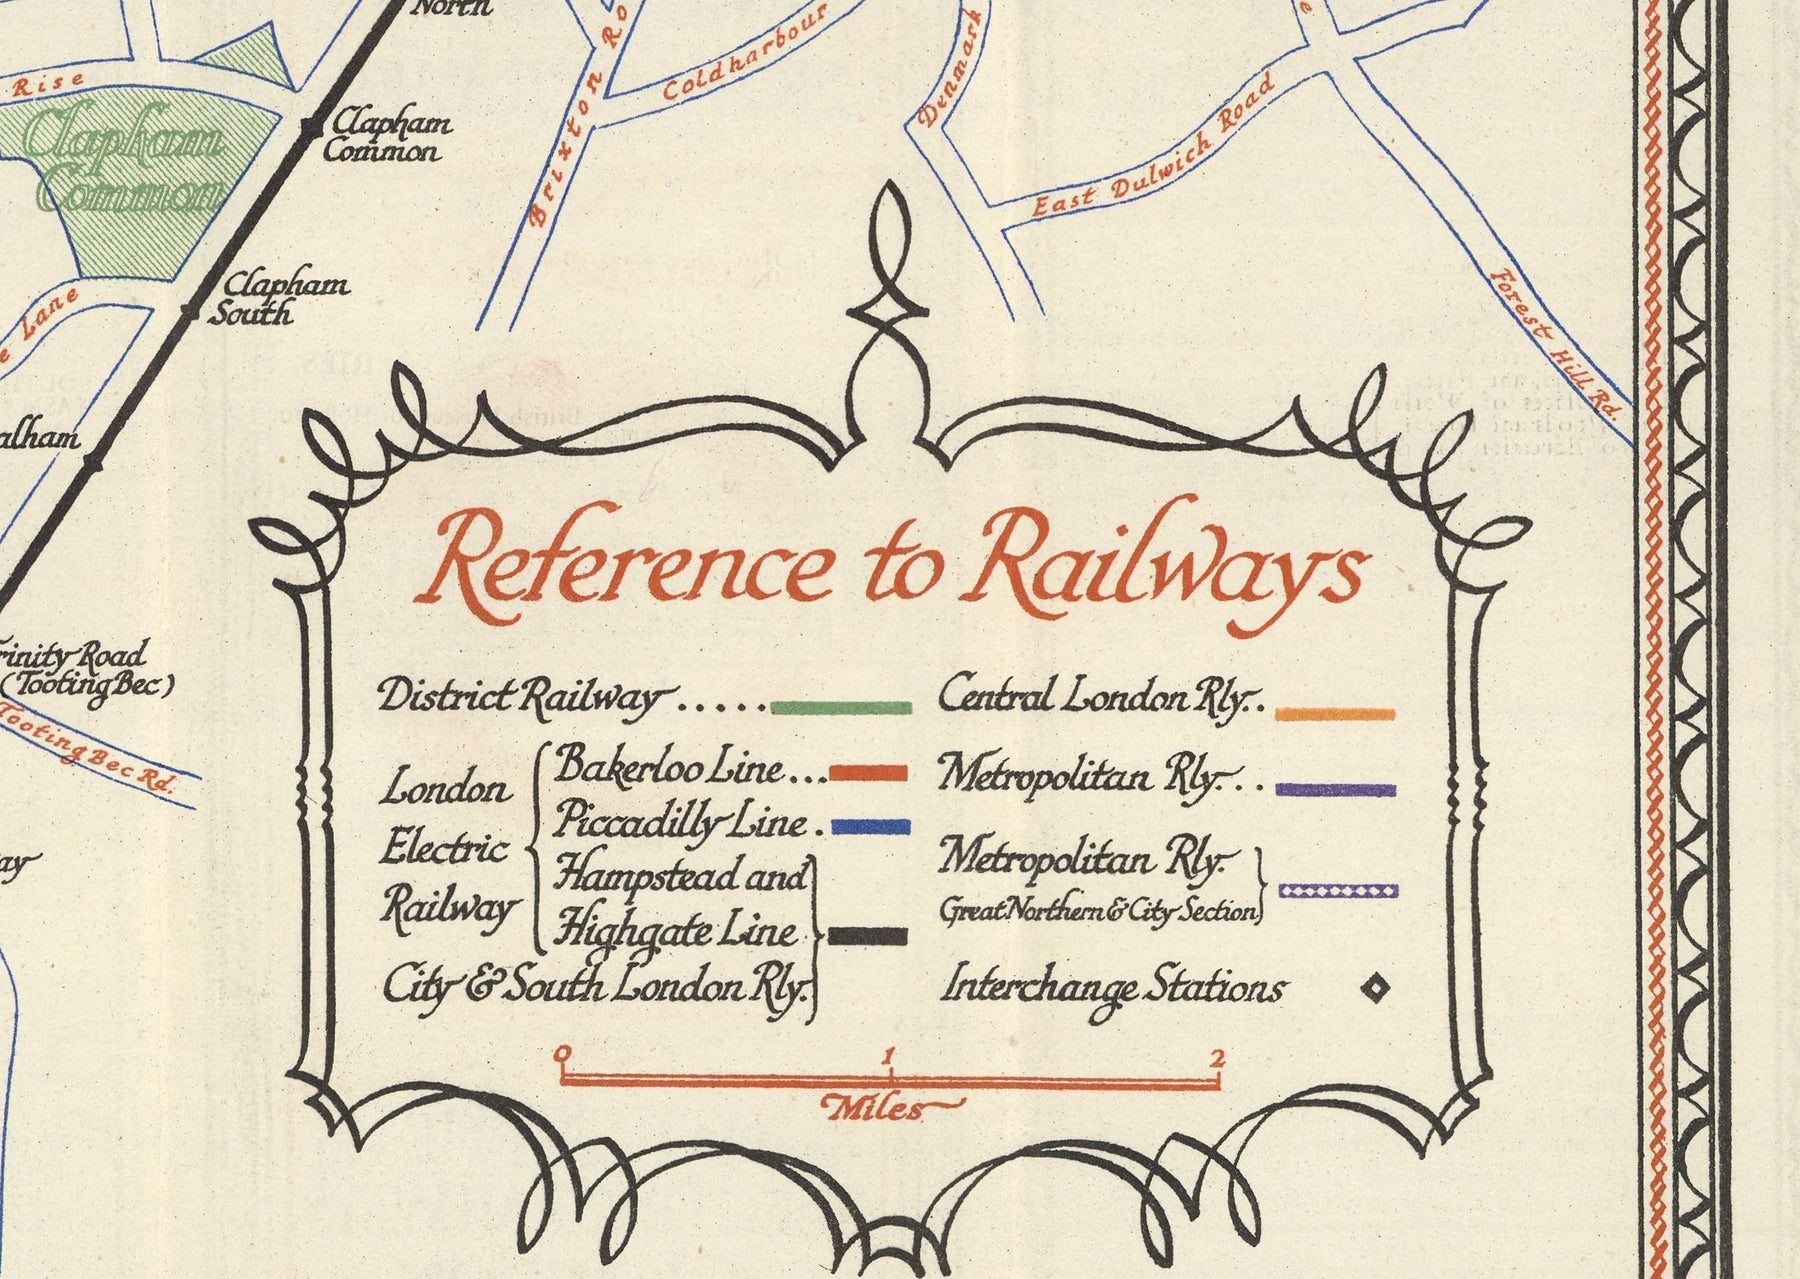 North
Rise
Clapham
Common
Clapham
Common
Brixton Ro
Coldharbour
Denmark
East Dulwich Road
Forest Hill Rd.
Clapham
South
Lane
alham
rinity Road
(Tooting Bec)
Tooting Bec Rd.
ay
Reference to Railways
District Railway .....
London
Electric
Railway
Bakerloo Line...
Piccadilly Line .
Hampstead and
Highgate Line
City & South London Rly.
Central London Rly..
Metropolitan Rly...
Metropolitan Rly.
Great Northern & City Section
Interchange Stations
0 1 2
Miles